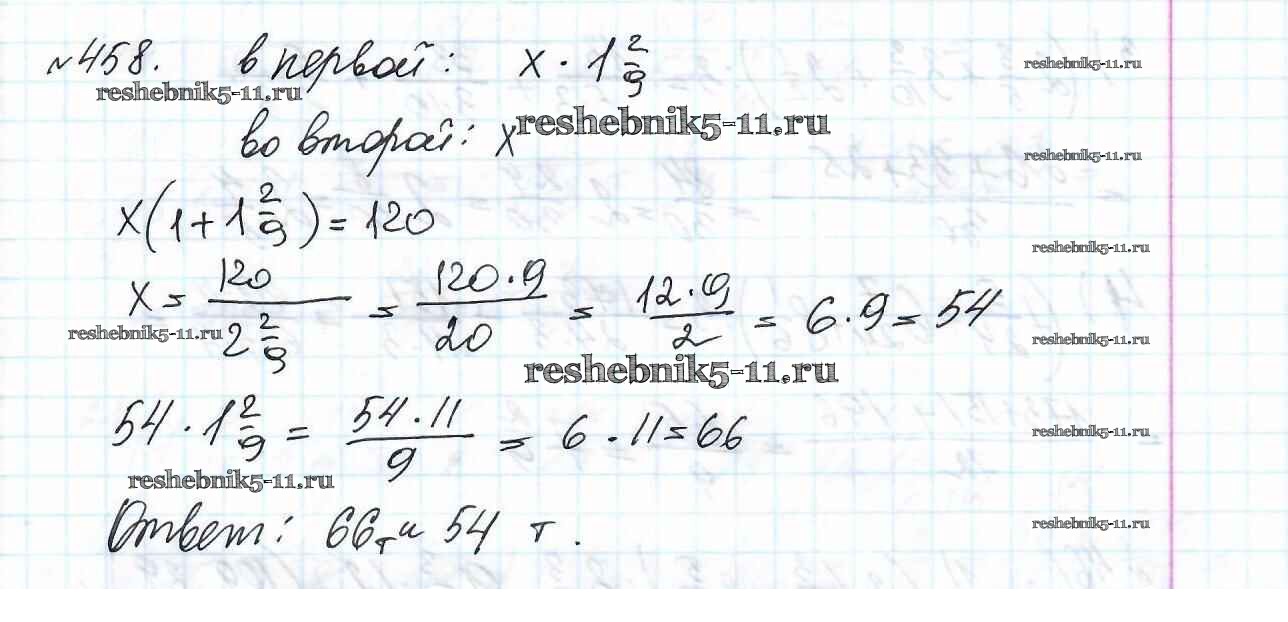 №458. в первой: x · 1 2/9
reshebnik5-11.ru
reshebnik5-11.ru
reshebnik5-11.ru
во второй: x
reshebnik5-11.ru
x(1 + 1 2/9) = 120
reshebnik5-11.ru
x = 120/(2 2/9) = (120 · 9)/20 = (12 · 9)/2 = 6 · 9 = 54
reshebnik5-11.ru
reshebnik5-11.ru
reshebnik5-11.ru
54 · 1 2/9 = (54 · 11)/9 = 6 · 11 = 66
reshebnik5-11.ru
reshebnik5-11.ru
Ответ: 66 т и 54 т.
reshebnik5-11.ru